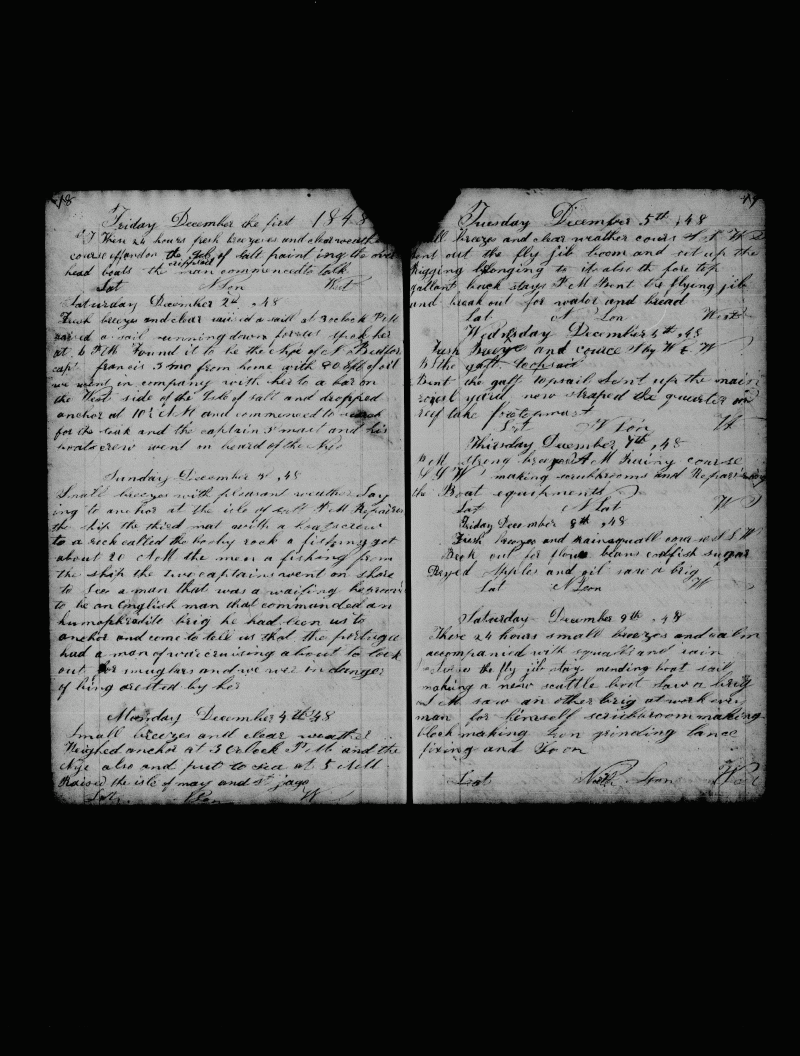 18
Friday December the first 1848
These 24 hours fresh breezes and clear weather
course off and on the Isle of Salt painting the over
crippled
head boats the man commenced to talk
Lat N Lon West
Saturday December 2d ,48
Fresh breezes and clear raised a sail at 3 oclock P M
a sail running down spoke her
at 6 P M found it to be the Nye of N Bedford
capt francis 3 mo from home with 80 bbl of oil
we went in company with her to a bar on
the West side of the Isle of Salt and dropped
anchor at 10 A M and commenced to search
for the leak and the captain 3 mait and his
boats crew went on board of the Nye
Sunday December 3d ,48
Small breezes with pleasant weather Lay
ing to anchor at the isle of salt P M Repaired
the ship the third mat with a boatscrew
to a rock called the booby rock a fishing got
about 20 A M the men a fishing from
the ship the two captains went on shore
to see a man that was a waifing he prooved
to be an English man that commanded an
humophrodite brig he had seen us to
anchor and come to tell us that the portugue
had a man of war cruising about to look
out for smuglars and we wer in danger
of bing arested by her
Monday December 4th 48
Small breezes and clear weather
Weighed anchor at 3 Oclock P M and the
Nye also and put to sea at 5 A M
Raised the isle of may and St jago
Lat Lon W
19
Tuesday December 5th ,48
breezes and clear weather cours S S W
sent out the fly jib boom and set up the
Rigging belonging to it also the fore top
gallant back stays P M Bent the flying jib
and break out for water and bread
Lat N Lon West
Wednesday December 6th ,48
Fresh breeze and course S by W & W
the gaff topsail
Bent the gaff topsail sent up the main
yard now straped the quarter
reef take
Lat N Lon W
Thursday December 7th ,48
P M Strong breezes A M course
S S W making scrubbrooms and Repairing
the Boat equiphments
Lat N Lat W
Friday December 8th ,48
Fresh breezes and rainsqualls course S S W
Brok out for flour beans codfish sugar
Dryed Apples and oil saw a brig
Lat N Lon W
Saturday December 9th ,48
These 24 hours small breezes and calm
accompanied with squalls and rain
the fly jib stay mending boat sail
making a new scuttle but Saw a brig
A M saw an other brig at work every
man for himself scrubbroom making
block making Iron grinding lance
fixing and So on
Lat North Lon West